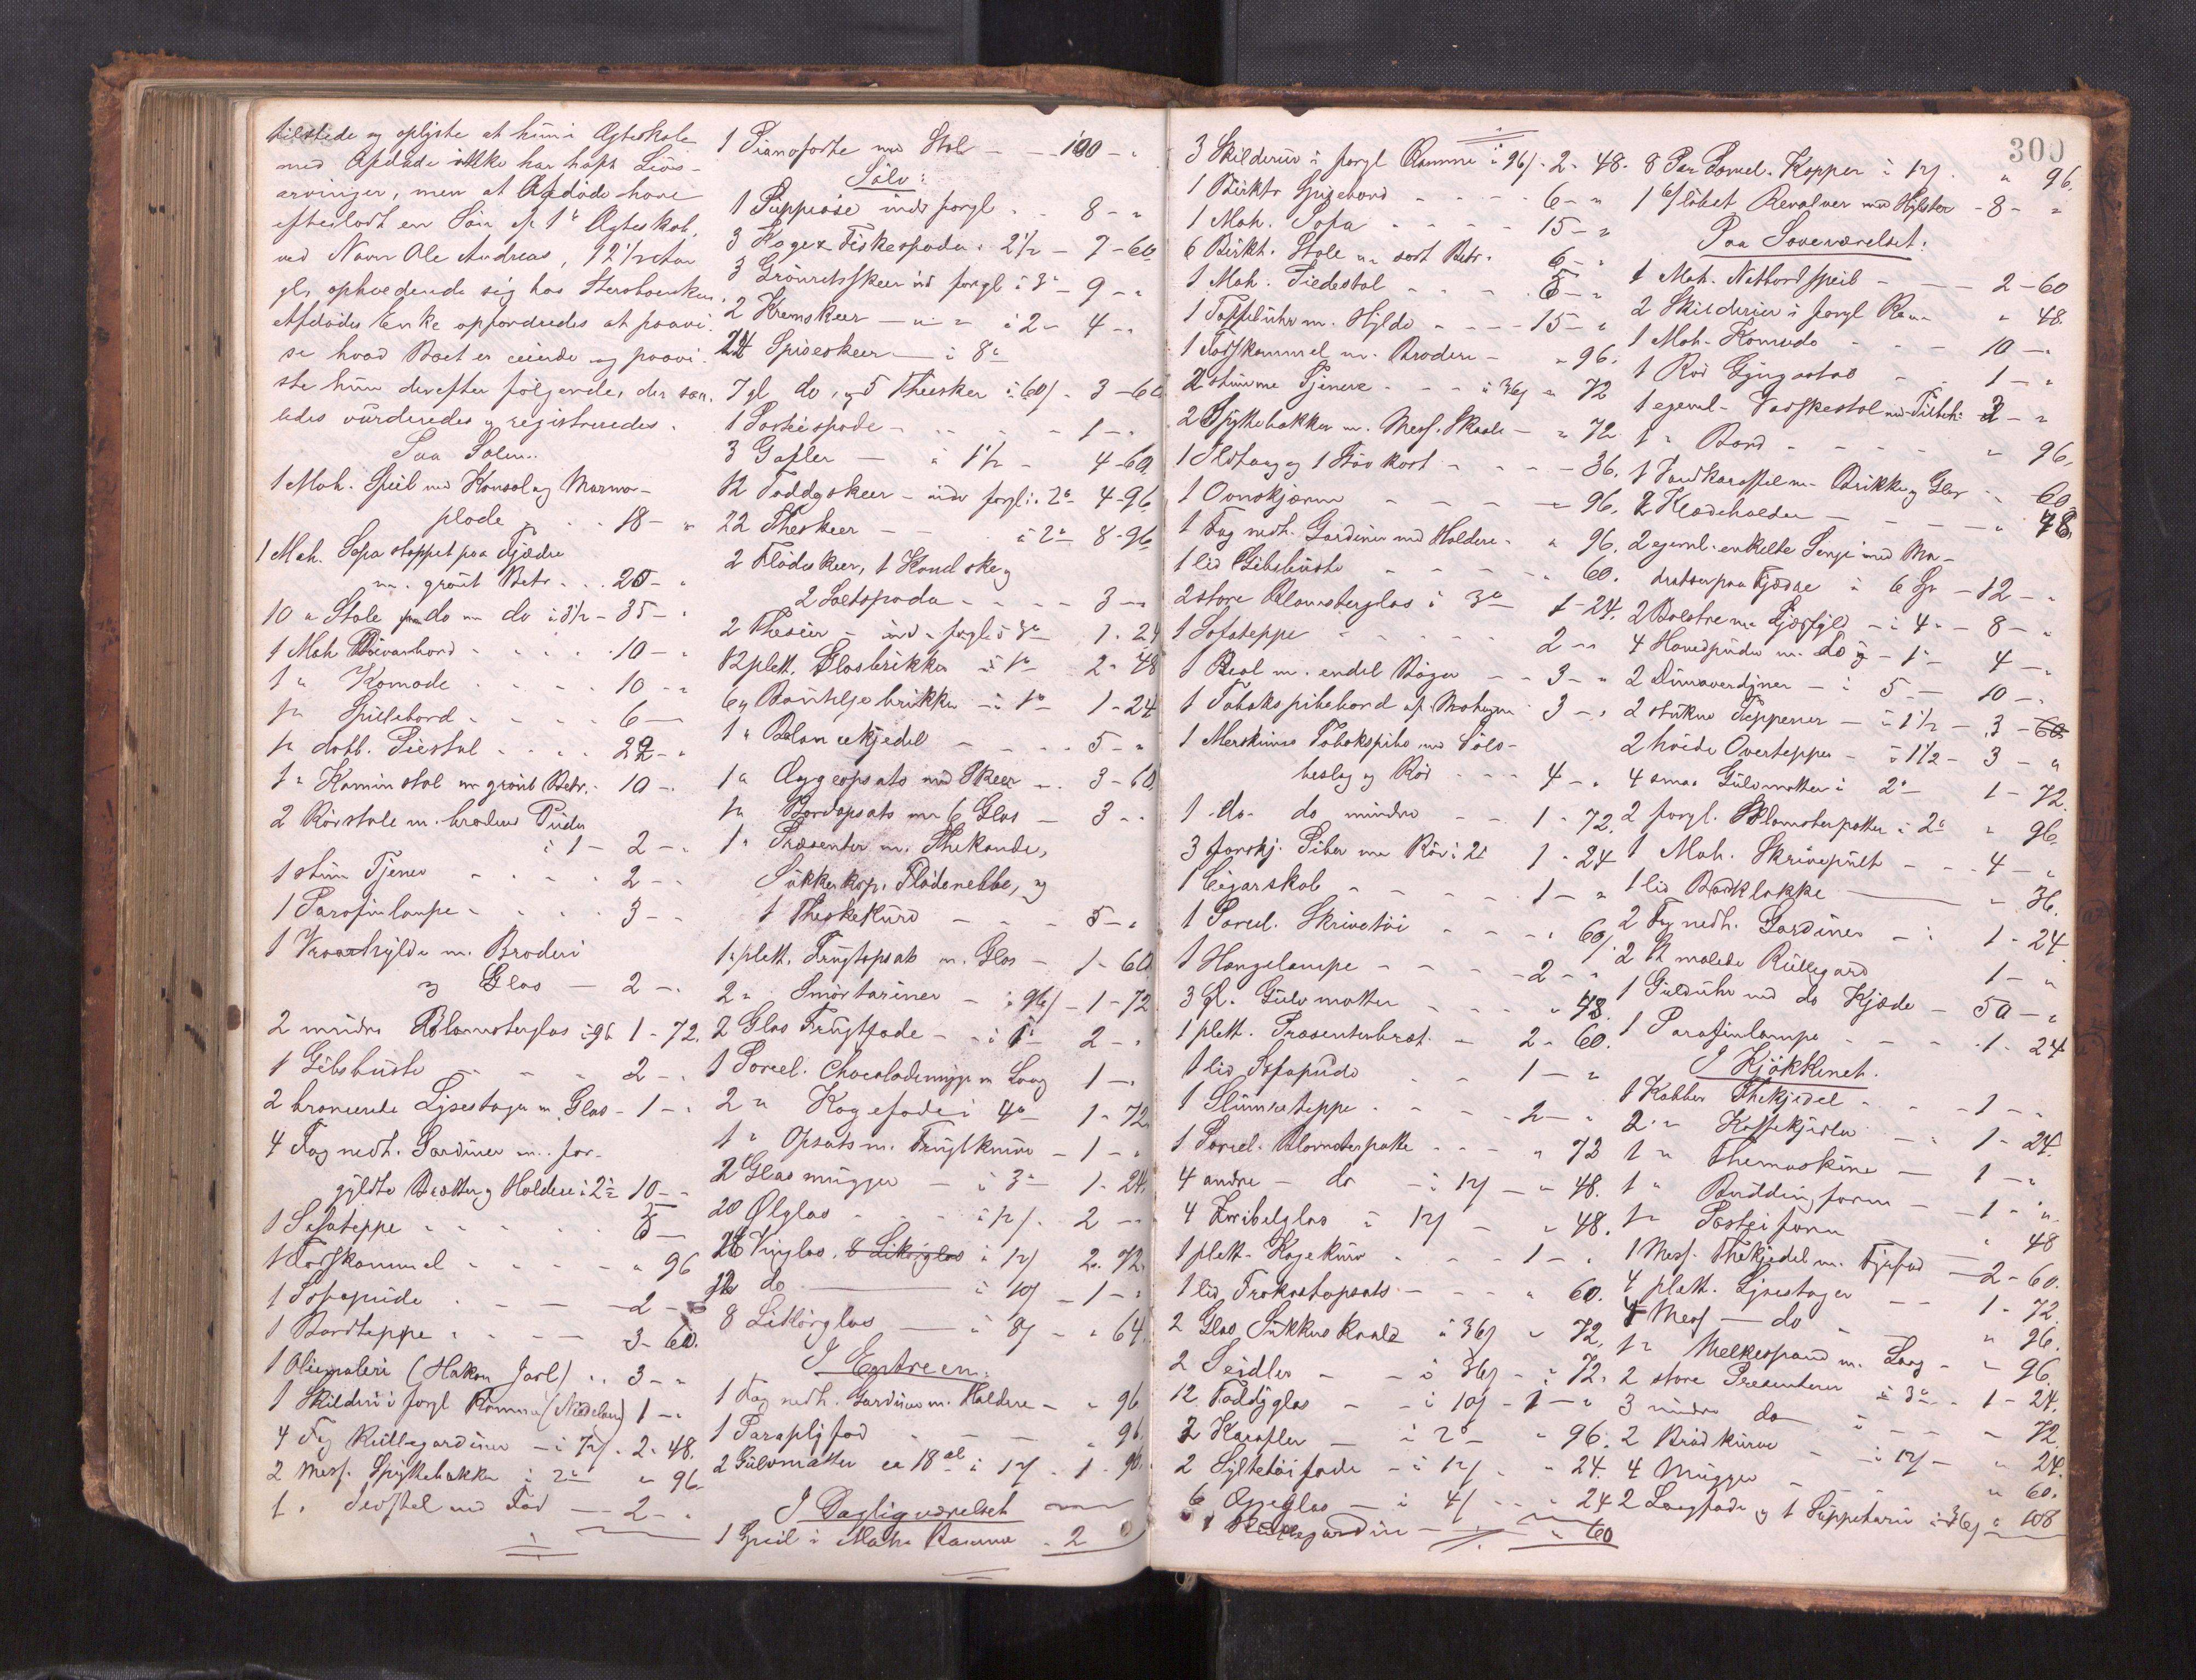 tilstede og oplyste at hun i Ægteskab
med Afdøde ikke har havt Livs-
arvinger, men at Afdøde have
efterladt en Søn af 1ste Ægteskab,
ved Navn Ole Andreas, 12 1/2 Aar
gl, opholdende sig hos
Afdødes Enke opfordredes at paavi-
se hvad Boet er eiende og paavi-
ste hun derefter følgende, der saa-
ledes vurderedes og registreredes.
Paa Salen:
1 Mah. Speil med Konsol og Marmor-
plade - 18 - "
1 Mah. Sofa stoppet paa Fjædre
m. grønt Betr. - 20 - "
10 " Stole do m do à 3 1/2 - 35 - "
1 Mah Divanbord - 10 - "
1 " Komode - 10 - "
1 " Spillebord - 6 -
1 " dobb. - 22 - "
1 " Kaminstol m grønt Betr. - 10 - "
2 Rørstole m. broderet Puder
à 1 - 2 - "
1 stum Tjener - 2 - "
1 Parafinlampe - 3 - "
1 Hylde m. Broderi
og Glas - 2 - "
2 mindre Blomsterglas à 96 1 - 72.
1 Gibsbuste - 2 - "
2 broncerede Lysestager m. Glas - 1 - "
4 Fag nedh. Gardiner m. for-
gyldte Bretter og Holdere à 2 1/2 10 - "
1 Sofateppe -
1 Fodskammel - " 96
1 Sofapude - 2 - "
1 Bordteppe - 3 - 60.
1 Oliemaleri (Hakon Jarl) - 3 - "
1 Skilderi i forgl Ramme 1 - "
4 Fag Rullegardiner - à 72/ - 2 - 48.
2 Mess. Spyttebakker - " 96
1 " med Fad - 2 - "
1 Pianoforte med Stol - 100 - "
Sølv:
1 Suppeøse indv forgl - 8 - "
3 Kage & Fiskespader à 2 1/2 - 7 - 60
3 Grønretskeer ind forgl à 3 - 9 - "
2 Kremskeer - " - à 2 - 4 - "
24 Spiseskeer - à 8
7 gl do, og 5 Theskeer à 60/ - 3 - 60
1 Posteispade - 1 - "
3 Gafler - à 1 1/2 - 4 - 60
12 Toddyskeer - indv forgl à 2 4 - 96
22 Theskeer - à 2 8 - 96
2 Flødeskeer, 1 Kandske og
2 Saltspader - 3 - "
2 Thesier - ind forgl à 3 1 - 24
12 plett. Glasbrikker à 1 2 - 48
6 " Bouteljebrikker - à 1 1 - 24
1 " Balancekjedel - 5 - "
1 " Æggeopsats med Skeer - 3 - 60
1 " Bordopsats m 6 Glas - 3 - "
1 " Præsenter m. Thekande,
Sukkerkop, Flødenebbe, og
1 Theskekurv - 5 - "
1 plett. Frugtopsats m. Glas - 1 - 60
2 " Smørtariner - à 96/ - 1 - 72
2 Glas Frugtfade - à 1 2 - "
1 Porcel. Chocolademugge m Laag 1 - "
2 " Kagefade à 4 1 - 72
1 " Opsats m. Frugtknive - 1 - "
2 Glasmugger - à 3 1 - 24.
20 Ølglas - à 12/ - 2 - "
26 Vinglas, 8 Likørglas à 12/ 2. 72.
12 do - à 10/ - 1 - "
8 Likørglas - à 8/ - " 64
I Entreen:
1 Fag nedh. Gardiner m. Holdere - " 96
1 Paraplyfod - " 96
2 Gulvmatter ca 18 al à 12/ - 1 - 96
I Dagligværelset
1 Speil i Mah. Ramme - 2
300
3 Skilderier i forgl Ramme à 96/ - 2 - 48.
1 Birktr Spisebord - 6 - "
1 Mah. Sofa - 15 - "
6 Birktr. Stole m sort Betr. 6 - "
1 Mah. Piedestal -
1 Taffeluhr m. Hylde - 15 - "
1 Fodskammel m. Broderi - " 96.
2 stumme Tjenere - à 36/ " 72
2 Spyttebakker m. Mess. Skaale - " 72.
1 Ildtang og 1 Støvkost - 36.
1 Ovnskjærm - " 96.
1 Fag nedh. Gardiner med Holdere - " 96.
1 lid Gibsbuste - " 60.
2 store Blomsterglas à 3 1 - 24.
1 Sofateppe - 2 - "
1 Reol m. endel Bøger - 3 - "
1 Tobakspibebord af Mahogni 3 - "
1 Merskums Tobakspibe med Sølv-
beslag og Rør - 4 - "
1 do do mindre - 1 - 72.
3 forskj. Piber m Rør à 1 - 24
1 Cigarskab - 1 - "
1 Porcel. Skrivetøi - " 60/
1 Hængelampe - 2 - "
3 gl. Gulvmatter - " 48.
1 plett. Præsenterbræt - 2 - 60.
1 lid Sofapude - 1 - "
1 Slumreteppe - 2 - "
1 Porcel. Blomsterpotte - " 72
4 andre - do - à 12/ - " 48.
4 Zwibelglas à 12/ - " 48.
1 plett. Kagekurv - 1 - "
1 lid Frokostopsats - " 60.
2 Glas Sukkerskaale à 36/ " 72,
2 Seidler - à 36/ - " 72.
12 Toddyglas - à 10/ - 1 - "
2 Karafler - à 2 - " 96.
2 Syltetøifade - à 12/ - " 24.
6 Æggeglas - à 4/ - " 24
1 Rullegardin - " 60
8 Par Porcel. Kopper à 12/ - " 96.
1 6/løbet Revolver med Hylster - 8 - "
Paa Soveværelset:
1 Mah. Natbord speil - 2 - 60
2 Skilderier i forgl Ram " 48.
1 Mah. Komode - 10 - "
1 Rør Gyngestol - 1 - "
1 egeml. Vaskestol med Tilbeh: 2 - "
1 " Bord - " 96,
1 Vandkaraffel m. Brikke og Glas - 60
2 Klædeholder - " 48
2 egeml. enkelte Senge med Ma-
dratser paa Fjædre à 6 Sp - 12 - "
2 Bolstre m Fjærfyld - à 4 - 8 - "
4 Hovedpuder m. do à - 1 - 4 - "
2 Dunoverdyner - à 5 - 10 - "
2 stukne Teppener - à 1 1/2 - 3 - 60
2 hvide Overtepper - à 1 1/2 - 3 - "
4 smaa Gulvmatter à 2 - 1 - 72.
2 forgl. Blomsterpotter à 2 " 96.
1 Mah. Skrivepult - 4 - "
1 lid - " 36.
2 Fag nedh. Gardiner - 1 - 24.
2 St malede Rullegard 1 - "
1 Gulduhr med do Kjæde - 50 - "
1 Parafinlampe - 1 - 24
I Kjøkkenet.
1 Kobber Thekjedel - 1 - "
2 " Kaffekjedler - 1 - 24.
1 " Themaskine - 1 - "
1 " Buddingform - 1 - "
1 " Posteiform " 48
1 Mess. Thekjedel m. Fyrfad - 2 - 60.
4 plett. Lysestager - 1 - 72
4 Mess - do - " 96.
1 " Melkespand m. Laag - " 96.
2 store Presenterer à 3 - 1 - 24.
3 mindre do - " 72
2 Brødkurve - à 12/ - " 24.
4 Mugger - " 60.
2 Langfade og 1 Suppeterin à 36/ " 108